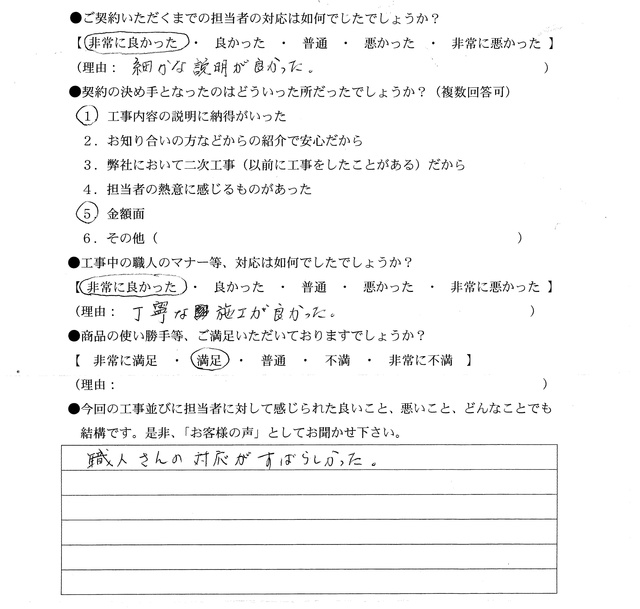 ●ご契約いただくまでの担当者の対応は如何でしたでしょうか?
【 非常に良かった ・ 良かった ・ 普通 ・ 悪かった ・ 非常に悪かった 】
(理由: 細かな説明が良かった。 )
●契約の決め手となったのはどういった所だったでしょうか?(複数回答可)
1 工事内容の説明に納得がいった
2.お知り合いの方などからの紹介で安心だから
3.弊社において二次工事(以前に工事をしたことがある)だから
4.担当者の熱意に感じるものがあった
5 金額面
6.その他( )
●工事中の職人のマナー等、対応は如何でしたでしょうか?
【 非常に良かった ・ 良かった ・ 普通 ・ 悪かった ・ 非常に悪かった 】
(理由: 丁寧な施工が良かった。 )
●商品の使い勝手等、ご満足いただいておりますでしょうか?
【 非常に満足 ・ 満足 ・ 普通 ・ 不満 ・ 非常に不満 】
(理由: )
●今回の工事並びに担当者に対して感じられた良いこと、悪いこと、どんなことでも
結構です。是非、「お客様の声」としてお聞かせ下さい。
職人さんの対応がすばらしかった。